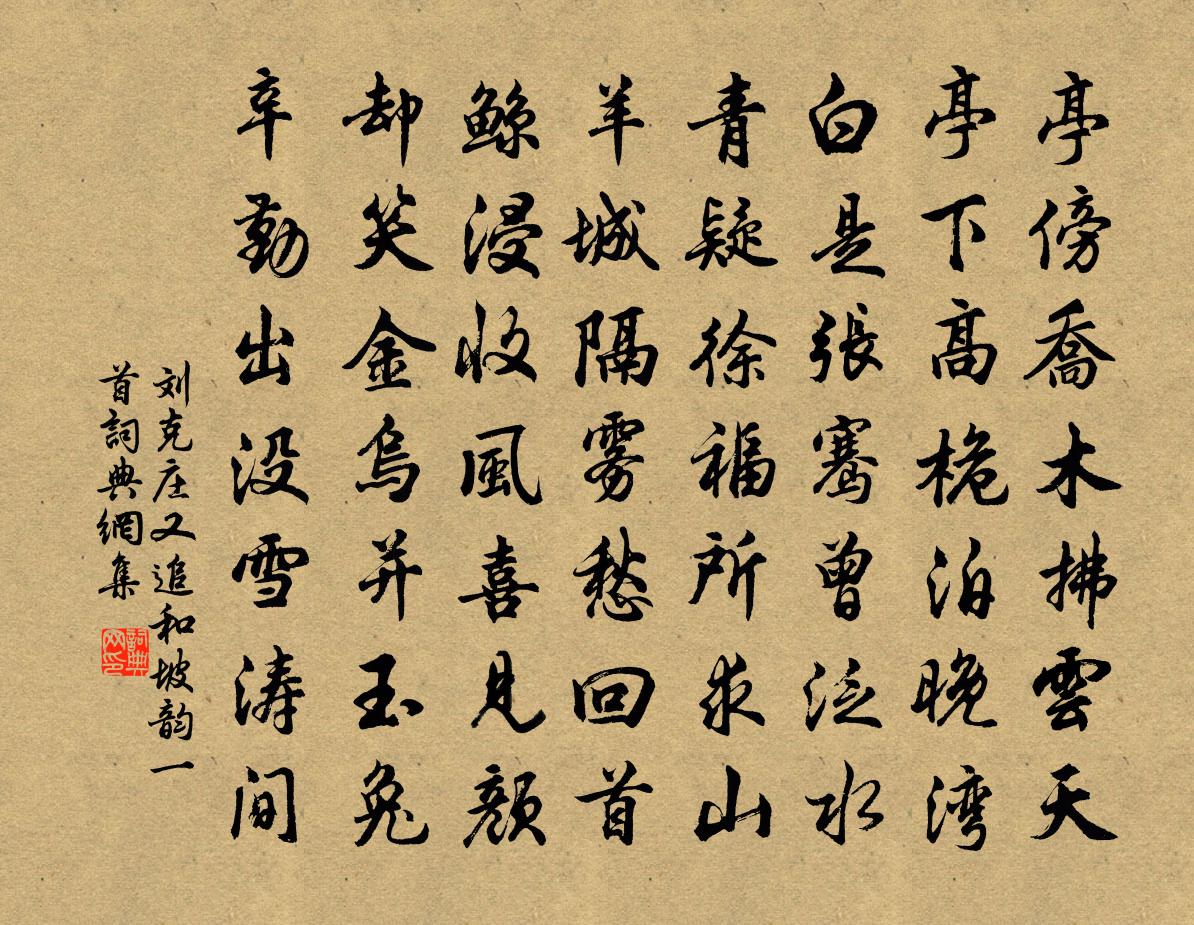 亭傍喬木拂雲天
亭下高桅泊晚湾
白是張騫曾泛水
青疑徐福所求山
羊城隔雾愁回首
鲸浸收風喜見顏
却笑金烏并玉兔
辛勤出没雪涛间
刘克庄又追和坡韵一
首詞典網集
詞典网印